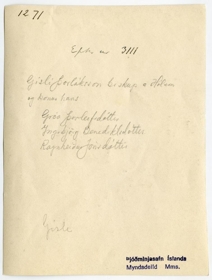 1271
3111
Gísli Þorláksson biskup á Hólum
og konur hans
Gróa Þorleifsdóttir
Ingibjörg Benediktsdóttir
Ragnheiður Jónsdóttir
Gísli
Þjóðminjasafn Íslands
Myndadeild Mms.